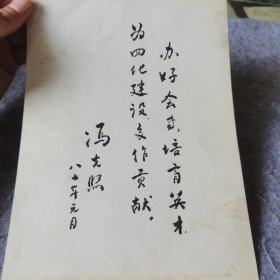 办好会刊，培育英才，
为四化建设多作贡献。
冯克熙
八七年元月